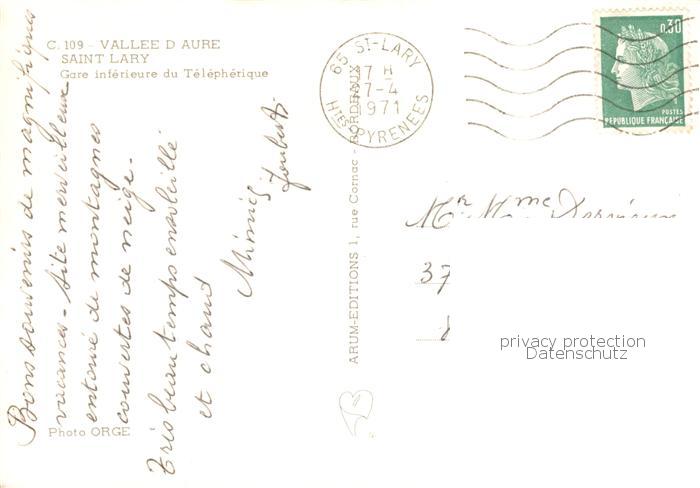 C. 109 - VALLEE D AURE
SAINT LARY
Gare inférieure du Téléphérique
Bons souvenirs de magnifiques
vacances - Site merveilleux
entouré de montagnes
couvertes de neige.
Très beau temps ensoleillé
et chaud
Mimie
Joubert
Photo ORGE
ARUM-EDITIONS 1, rue Cornac - BORDEAUX
65 ST-LARY
17 H
7-4
1971
HTES-PYRENEES
0,30
POSTES
REPUBLIQUE FRANÇAISE
Mr Mme
37
privacy protection
Datenschutz